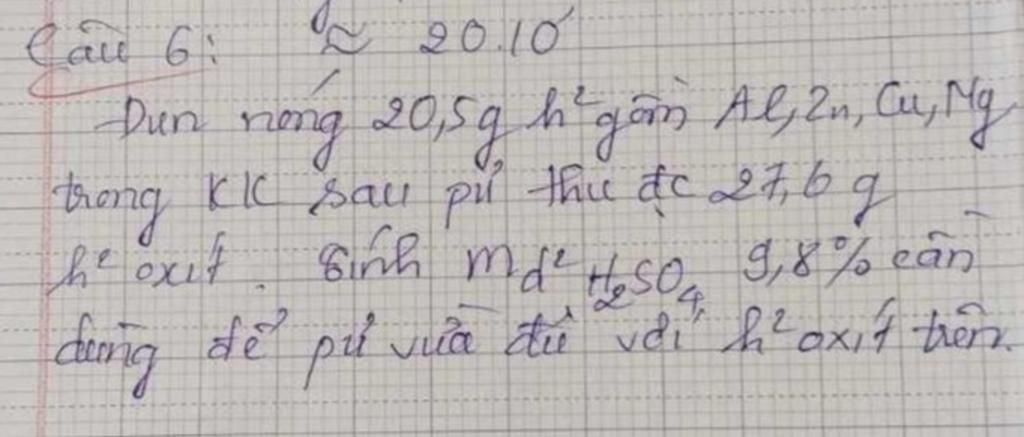 Câu 6: ≈ 20.10
Đun nóng 20,5g h² gồm Al, Zn, Cu, Mg
trong KK sau pứ thu đc 27,6 g
h² oxit. Tính md² H₂SO₄ 9,8% cần
dùng để pứ vừa đủ với h² oxit trên.